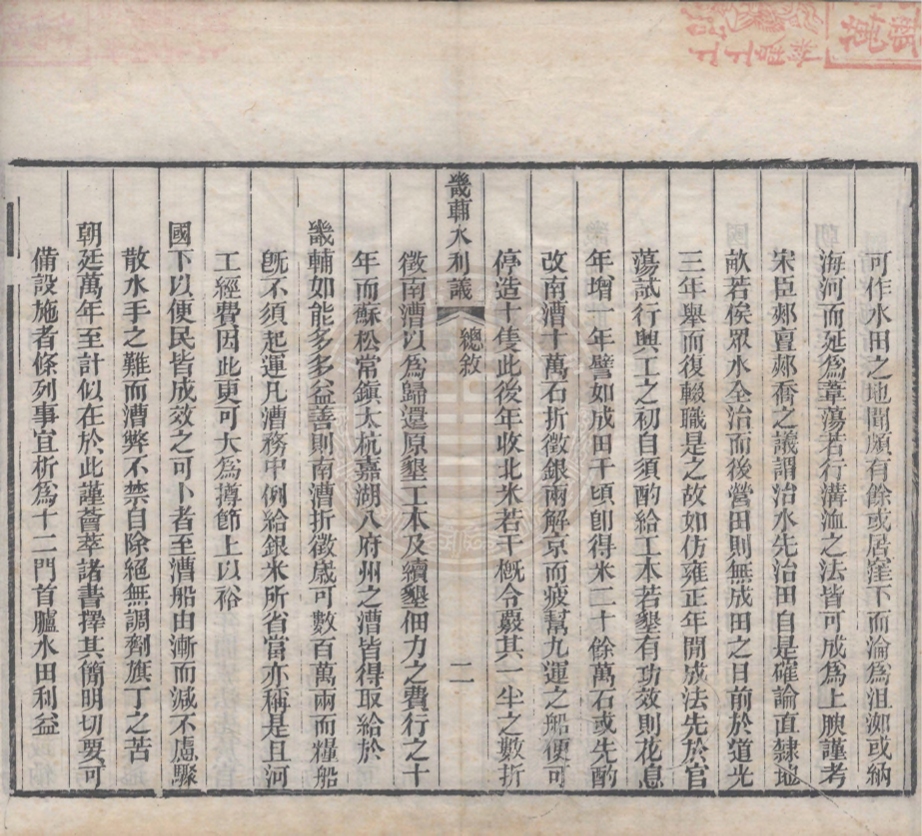 可作水田之地聞頗有餘或居窪下而淪爲沮洳或納
海河而延爲葦蕩若行溝洫之法皆可成爲上腴謹考
宋臣郟亶郟喬之議謂治水先治田自是確論直隸地
畝若俟眾水全治而後營田則無成田之日前於道光
三年舉而復輟職是之故如仿雍正年開成法先於官
蕩試行興工之初自須酌給工本若墾有功效則花息
年增一年譬如成田千頃卽得米二十餘萬石或先酌
改南漕十萬石折徵銀兩解京而疲幫九運之船便可
停造十隻此後年收北米若干概令覈其一半之數折
幾輔水利議
總敘
二
徵南漕以爲歸還原墾工本及續墾佃力之費行之十
年而蘇松常鎮太杭嘉湖八府州之漕皆得取給於
畿輔如能多多益善則南漕折徵歲可數百萬兩而糧船
旣不須起運凡漕務中例給銀米所省當亦稱是且河
工經費因此更可大爲撙節上以裕
國下以便民皆成效之可卜者至漕船由漸而減不慮驟
散水手之難而漕弊不禁自除絕無調劑旗丁之苦
朝廷萬年至計似在於此謹薈萃諸書擇其簡明切要可
備設施者條列事宜析爲十二門首臚水田利益